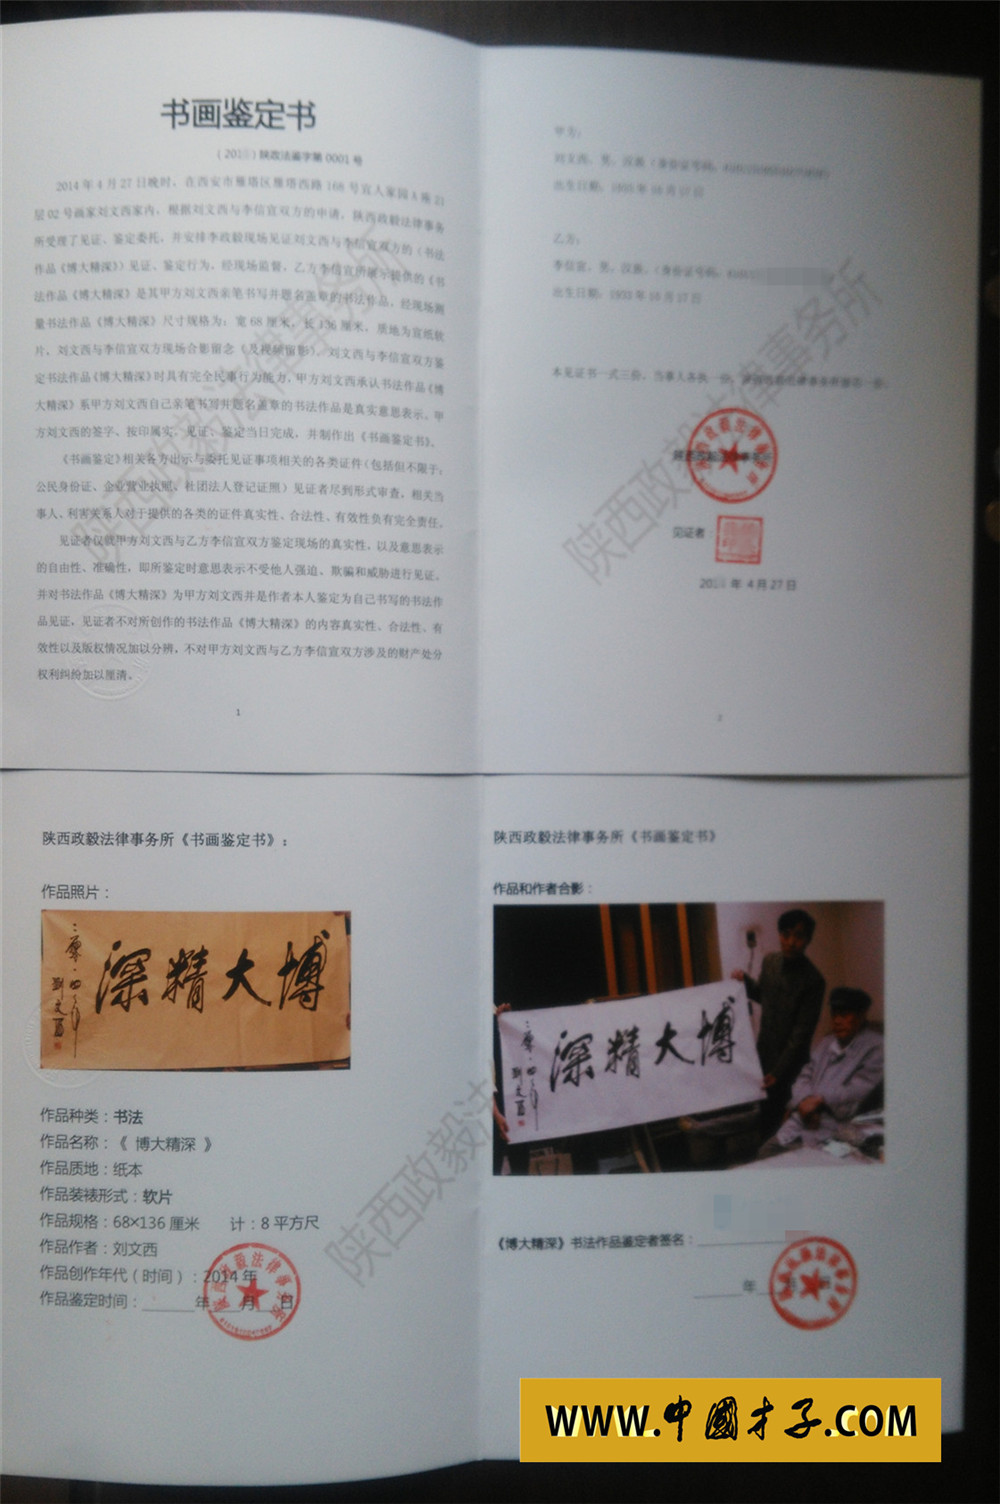 书画鉴定书
陕政法鉴字第0001号
2014年4月27日晚时，在西安市雁塔区雁塔西路168号宜人家园A栋21
层02号画家刘文西家内，根据刘文西与李信宣双方的申请，陕西政毅法律事务
所受理了见证、鉴定委托，并安排李政毅现场见证刘文西与李信宣双方的（书法
作品《博大精深》）见证、鉴定行为，经现场监督，乙方李信宣所展示提供的《书
法作品《博大精深》是其甲方刘文西亲笔书写并题名盖章的书法作品，经现场测
量书法作品《博大精深》尺寸规格为：宽68厘米，长136厘米，质地为宣纸软
片，刘文西与李信宣双方现场合影留念（及视频留影），刘文西与李信宣双方鉴
定书法作品《博大精深》时具有完全民事行为能力，甲方刘文西承认书法作品《博
大精深》系甲方刘文西自己亲笔书写并题名盖章的书法作品是真实意思表示。甲
方刘文西的签字、按印属实，见证、鉴定当日完成，并制作出《书画鉴定书》。
《书画鉴定》相关各方出示与委托见证事项相关的各类证件（包括但不限于：
公民身份证、企业营业执照、社团法人登记证照）见证者尽到形式审查，相关当
事人、利害关系人对于提供的各类的证件真实性、合法性、有效性负有完全责任。
见证者仅就甲方刘文西与乙方李信宣双方鉴定现场的真实性，以及意思表示
的自由性、准确性，即所鉴定时意思表示不受他人强迫、欺骗和威胁进行见证。
并对书法作品《博大精深》为甲方刘文西并是作者本人鉴定为自己书写的书法作
品见证，见证者不对所创作的书法作品《博大精深》的内容真实性、合法性、有
效性以及版权情况加以分辨，不对甲方刘文西与乙方李信宣双方涉及的财产处分
权利纠纷加以厘清。
1
甲方：
刘文西，男，汉族（身份证号码：
出生日期：1933年10月17日
乙方：
李信宣，男，汉族，（身份证号码：
出生日期：1933年10月17日
本见证书一式三份，当事人各执一份，陕西政毅法律事务所留存一份。
陕西政毅法律事务所
见证者：
年 4月27日
2
陕西政毅法律事务所
陕西政毅法律事务所
陕西政毅法律事务所《书画鉴定书》：
作品照片：
深精大博
二零一四年
刘文西
作品种类：书法
作品名称：《 博大精深 》
作品质地：纸本
作品装裱形式：软片
作品规格：68×136厘米 计：8平方尺
作品作者：刘文西
作品创作年代（时间）：2014年
作品鉴定时间：______年___月___日
陕西政毅法律事务所
陕西政毅法律事务所《书画鉴定书》
作品和作者合影：
深精大博
二零一四年
刘文西
《博大精深》书法作品鉴定者签名：
年 月 日
陕西政毅法
WWW.中國才子.COM